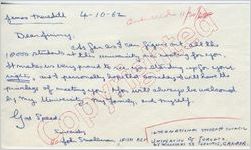 James Meredith 4-10-62
Dear Jimmy,
As far as I can figure out, all the
10000 students at this university are rooting for you.
It makes us very proud to see you stand up for your
rights, and I personally hope that someday, I will have the
privilege of meeting you. You will always be welcomed
by my University, my family, and myself.
God Speed.
Sincerely
Jack
INTERNATIONAL STUDENT COUNCIL
UNIVERSITY OF TORONTO
TORONTO, CANADA
Copyrighted